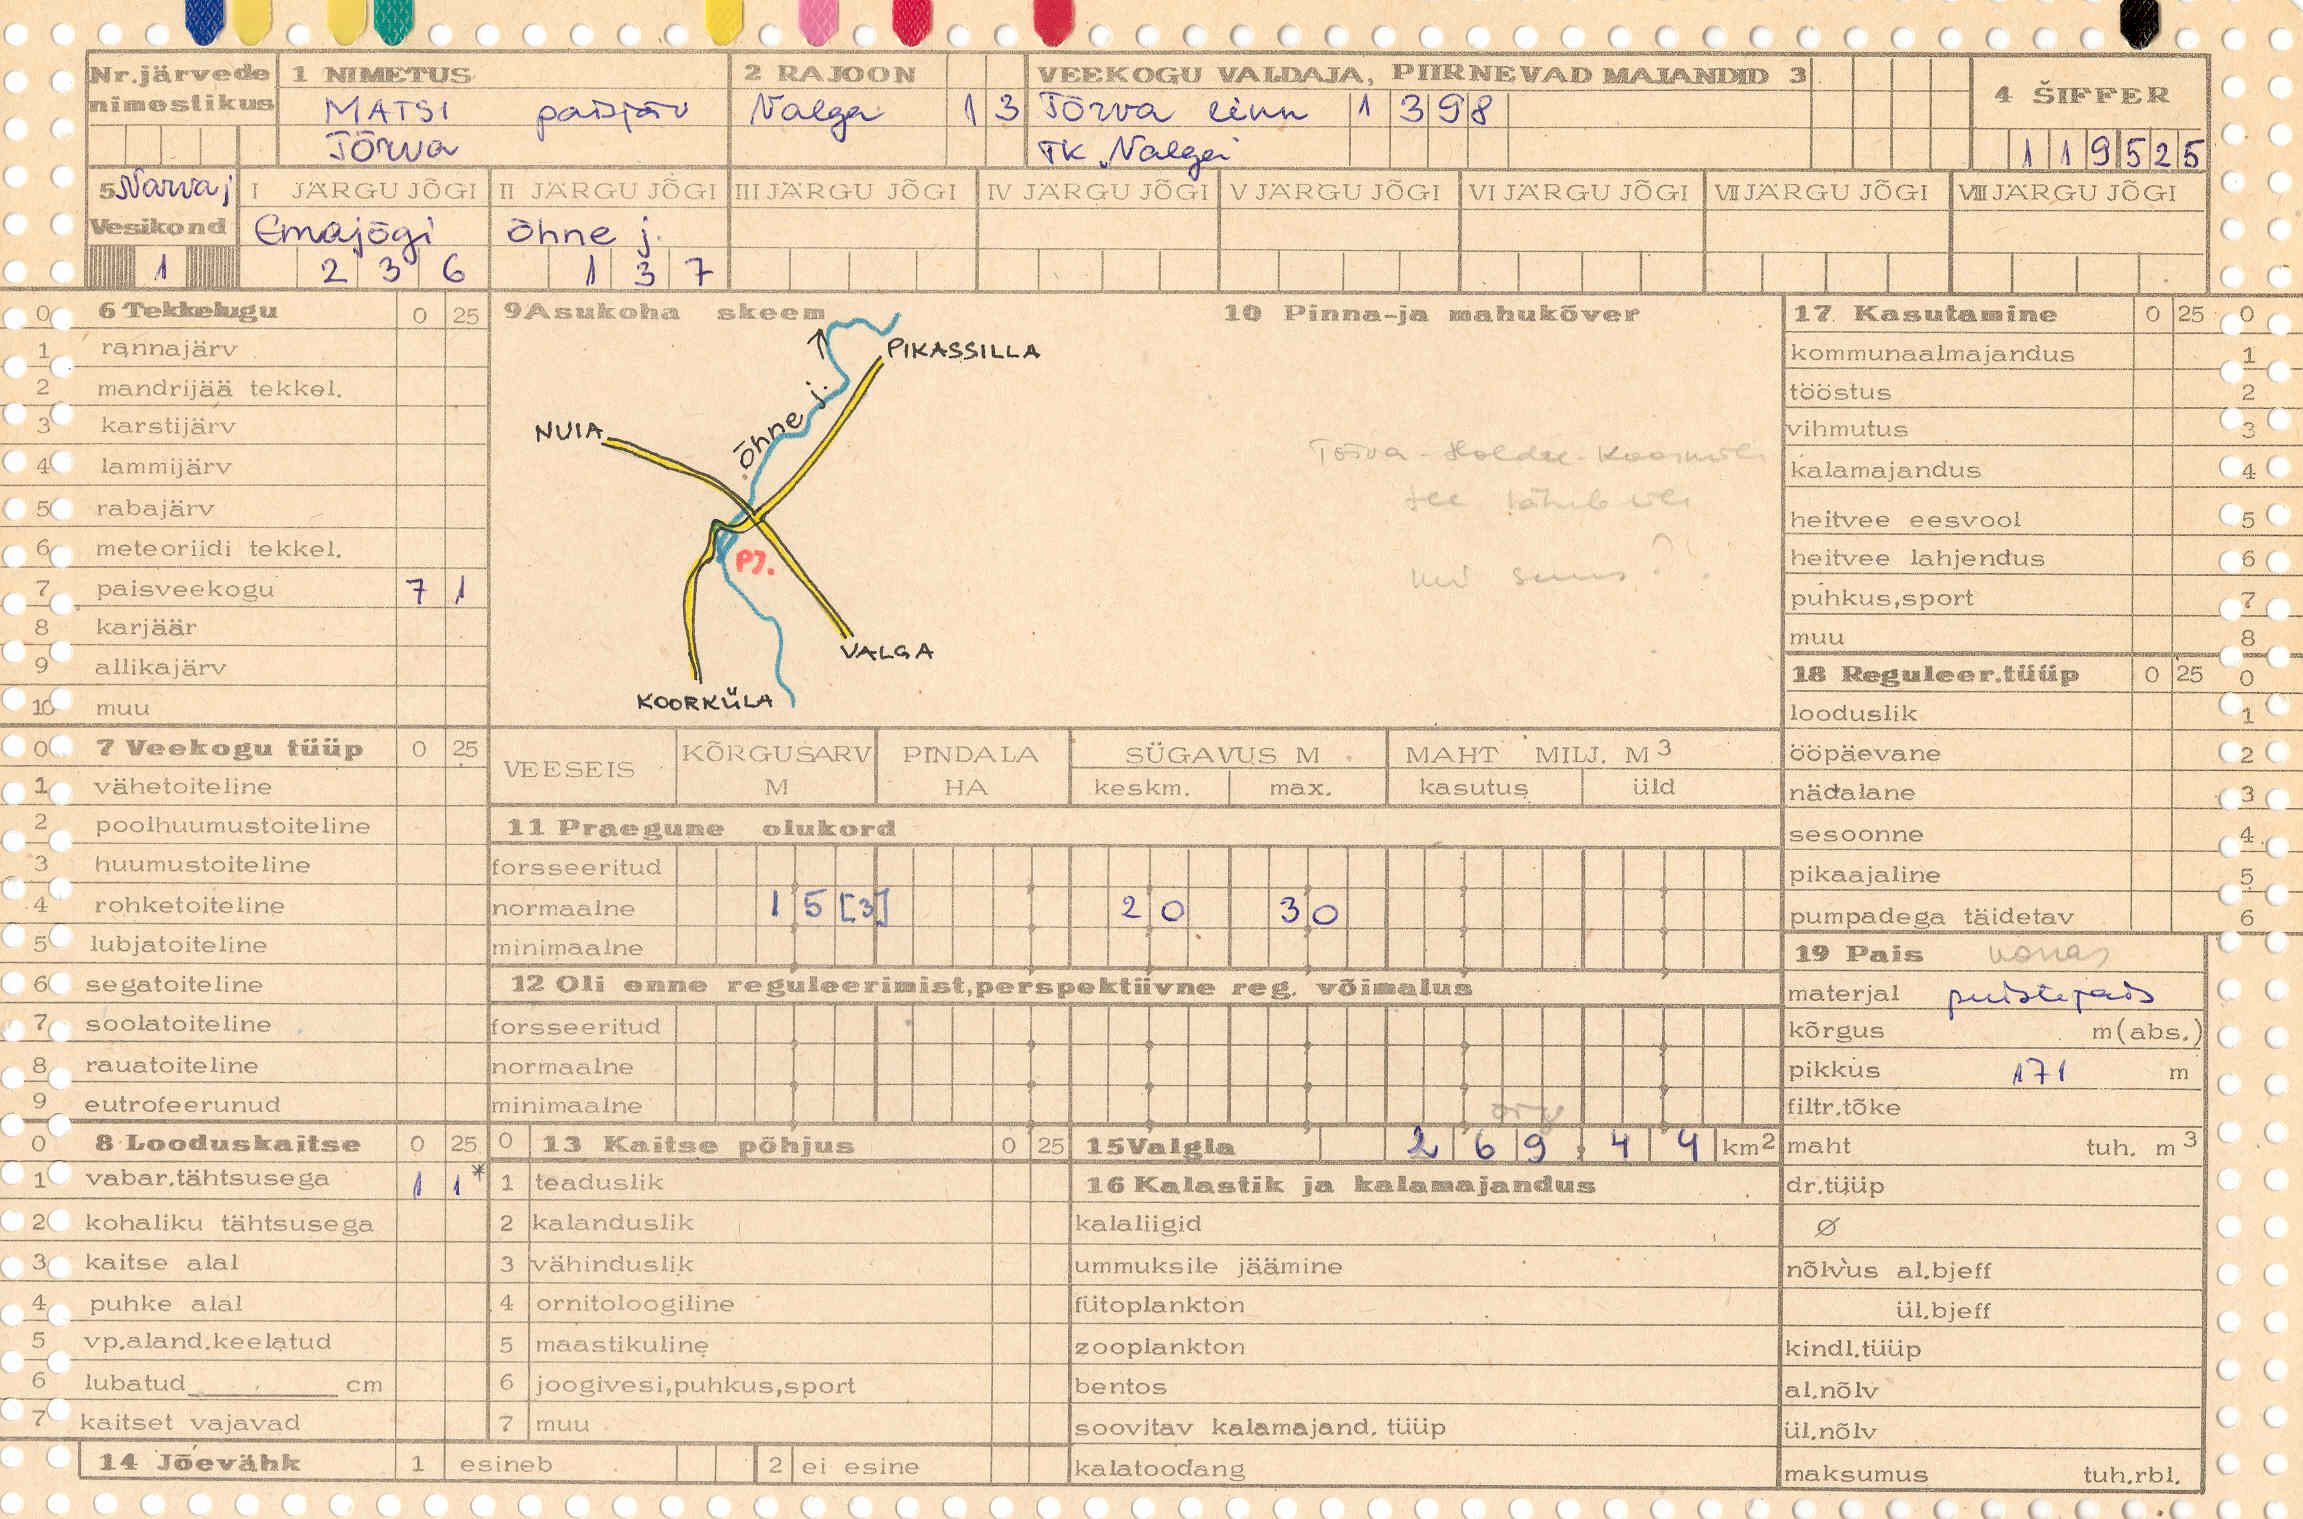 Nr.järvede nimestikus
1 NIMETUS
MATSI paisjärv
TÕRVA
2 RAJOON
Valga 13
VEEKOGU VALDAJA, PIIRNEVAD MAJANDID 3
Tõrva linn 1398
TK "Valga"
4 ŠIFFER
119525
5 Narva j
Vesikond
1
I JÄRGU JÕGI
Emajõgi
236
II JÄRGU JÕGI
Õhne j.
137
III JÄRGU JÕGI
IV JÄRGU JÕGI
V JÄRGU JÕGI
VI JÄRGU JÕGI
VII JÄRGU JÕGI
VIII JÄRGU JÕGI
0 6 Tekkelugu 0 25
1 rannajärv
2 mandrijää tekkel.
3 karstijärv
4 lammijärv
5 rabajärv
6 meteoriidi tekkel.
7 paisveekogu 7 1
8 karjäär
9 allikajärv
10 muu
0 7 Veekogu tüüp 0 25
1 vähetoiteline
2 poolhuumustoiteline
3 huumustoiteline
4 rohketoiteline
5 lubjatoiteline
6 segatoiteline
7 soolatoiteline
8 rauatoiteline
9 eutrofeerunud
0 8 Looduskaitse 0 25
1 vabar.tähtsusega 1 1*
2 kohaliku tähtsusega
3 kaitse alal
4 puhke alal
5 vp.aland.keelatud
6 lubatud cm
7 kaitset vajavad
9 Asukoha skeem
PIKASSILLA
Õhne j.
NUIA
PJ.
VALGA
KOORKÜLA
10 Pinna-ja mahukõver
Tõrva - Holdre - Koorküla
tee läheb üle
VEESEIS
KÕRGUSARV M
PINDALA HA
SÜGAVUS M
keskm. max.
MAHT MILJ. M3
kasutus üld
11 Praegune olukord
forsseeritud
normaalne 15[3] 20 30
minimaalne
12 Oli enne reguleerimist,perspektiivne reg. võimalus
forsseeritud
normaalne
minimaalne
0 13 Kaitse põhjus 0 25
1 teaduslik
2 kalanduslik
3 vähinduslik
4 ornitoloogiline
5 maastikuline
6 joogivesi,puhkus,sport
7 muu
14 Jõevähk 1 esineb 2 ei esine
15 Valgla 269,44 km2
16 Kalastik ja kalamajandus
kalaliigid
ummuksile jäämine
fütoplankton
zooplankton
bentos
soovitav kalamajand. tüüp
kalatoodang
17 Kasutamine 0 25 0
kommunaalmajandus 1
tööstus 2
vihmutus 3
kalamajandus 4
heitvee eesvool 5
heitvee lahjendus 6
puhkus,sport 7
muu 8
18 Reguleer.tüüp 0 25 0
looduslik 1
ööpäevane 2
nädalane 3
sesoonne 4
pikaajaline 5
pumpadega täidetav 6
19 Pais korras
materjal puistepais
kõrgus m(abs.)
pikkus 171 m
filtr.tõke
maht tuh. m3
dr.tüüp
Ø
nõlvus al.bjeff
ül.bjeff
kindl.tüüp
al.nõlv
ül.nõlv
maksumus tuh.rbl.